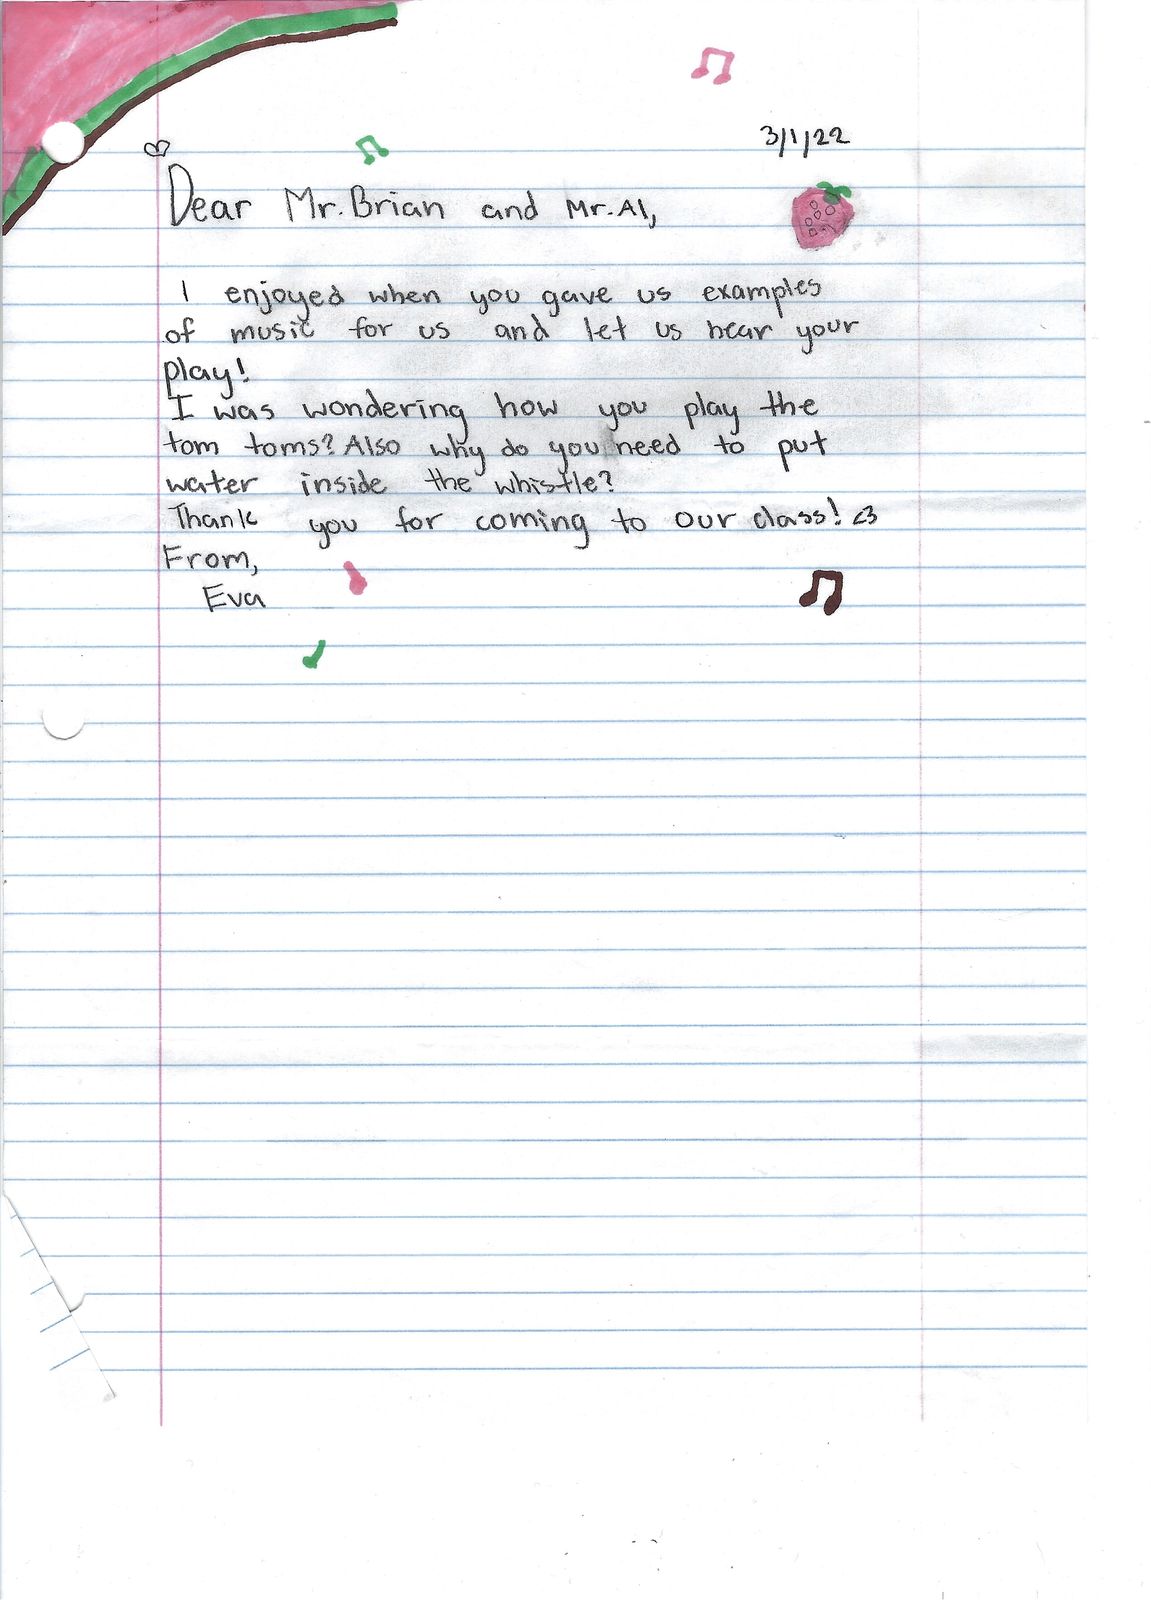 3/1/22
Dear Mr. Brian and Mr. Al,
I enjoyed when you gave us examples
of music for us and let us hear your
play!
I was wondering how you play the
tom toms? Also why do you need to put
water inside the whistle?
Thank you for coming to our class! <3
From,
Eva